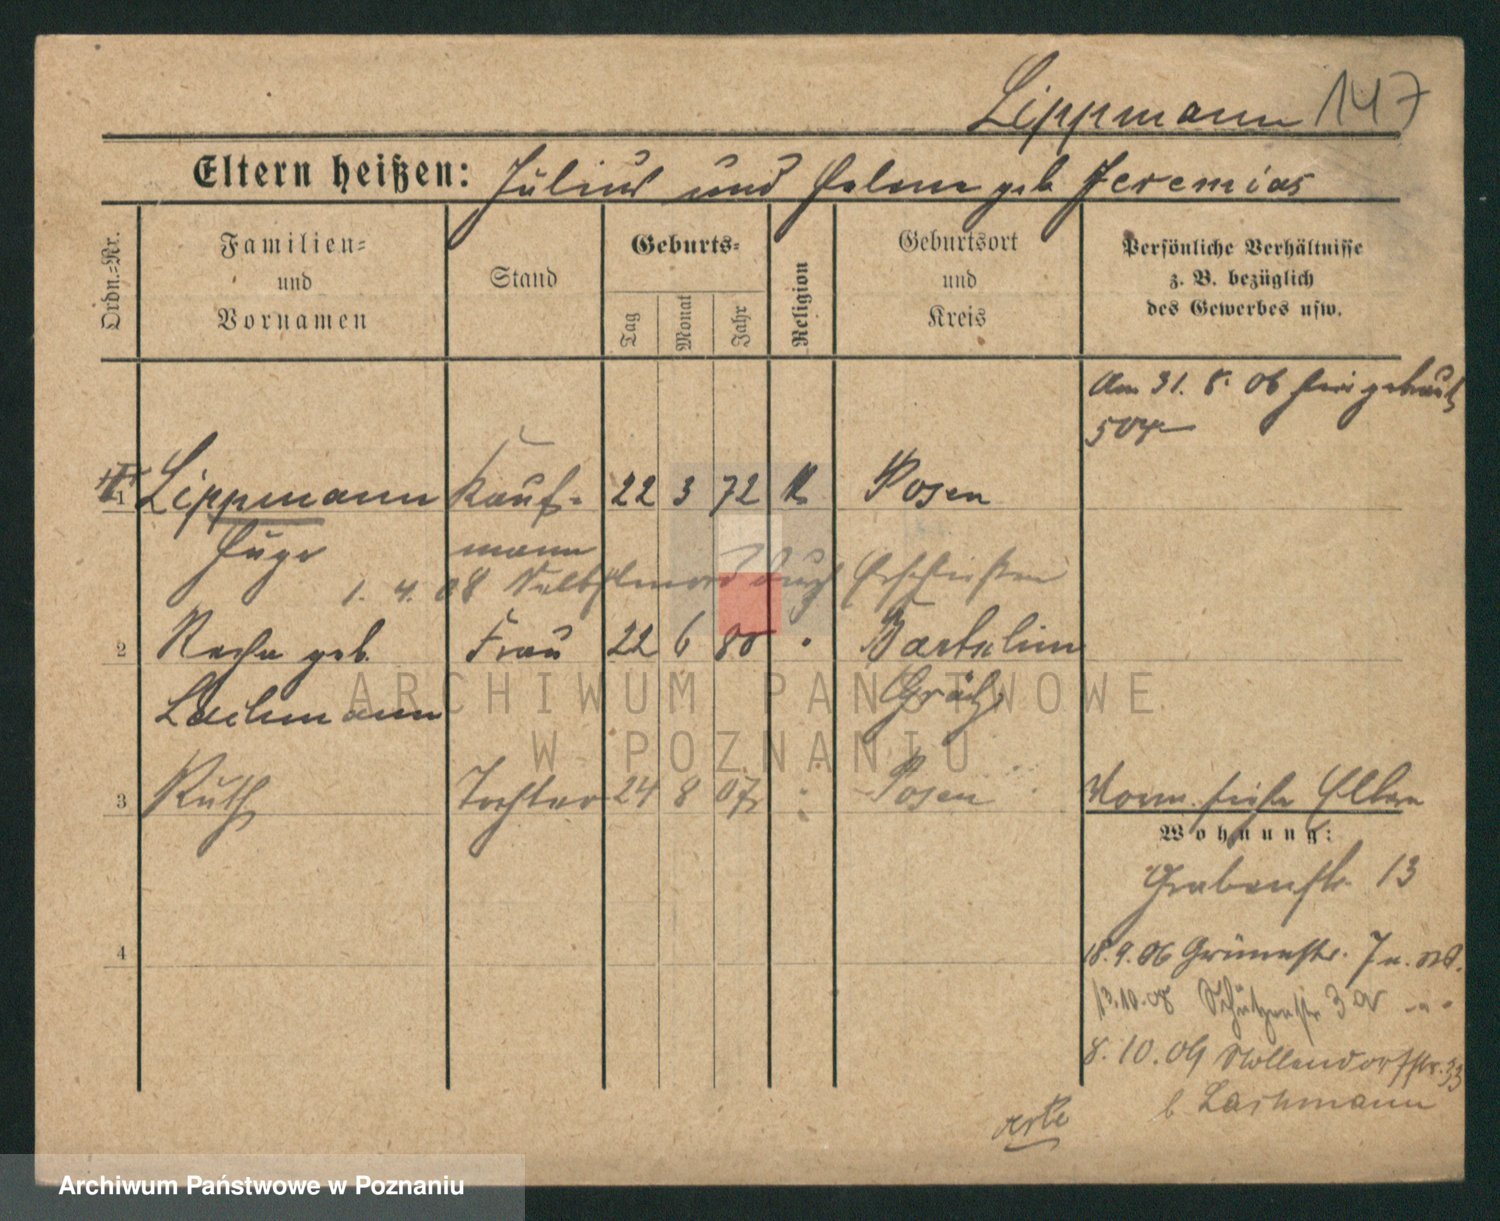 Lippmann 147
Eltern heißen: Julius und Helene geb Jeremias
Ordn.=Nr.
Familien=
und
Vornamen
Stand
Geburts=
Tag
Monat
Jahr
Religion
Geburtsort
und
Kreis
Persönliche Verhältnisse
z. B. bezüglich
des Gewerbes usw.
Am 31. 8. 06
1 Lippmann Kauf- 22 3 72 Posen
Hugo mann
1. 4. 08 Selbstmord durch Erschießen
2 Recha geb. Frau 22 6 80 "
Lachmann Grätz
3 Ruth Tochter 24 8 07 " Posen Vorm. siehe Eltern
Wohnung:
Grabenstr. 13
4
18.9.06 Grünestr. 7
13.10.08 Schützenstr 30
8.10.09 Nollendorfstr. 33
b Lachmann
ARCHIWUM PAŃSTWOWE
W POZNANIU
Archiwum Państwowe w Poznaniu